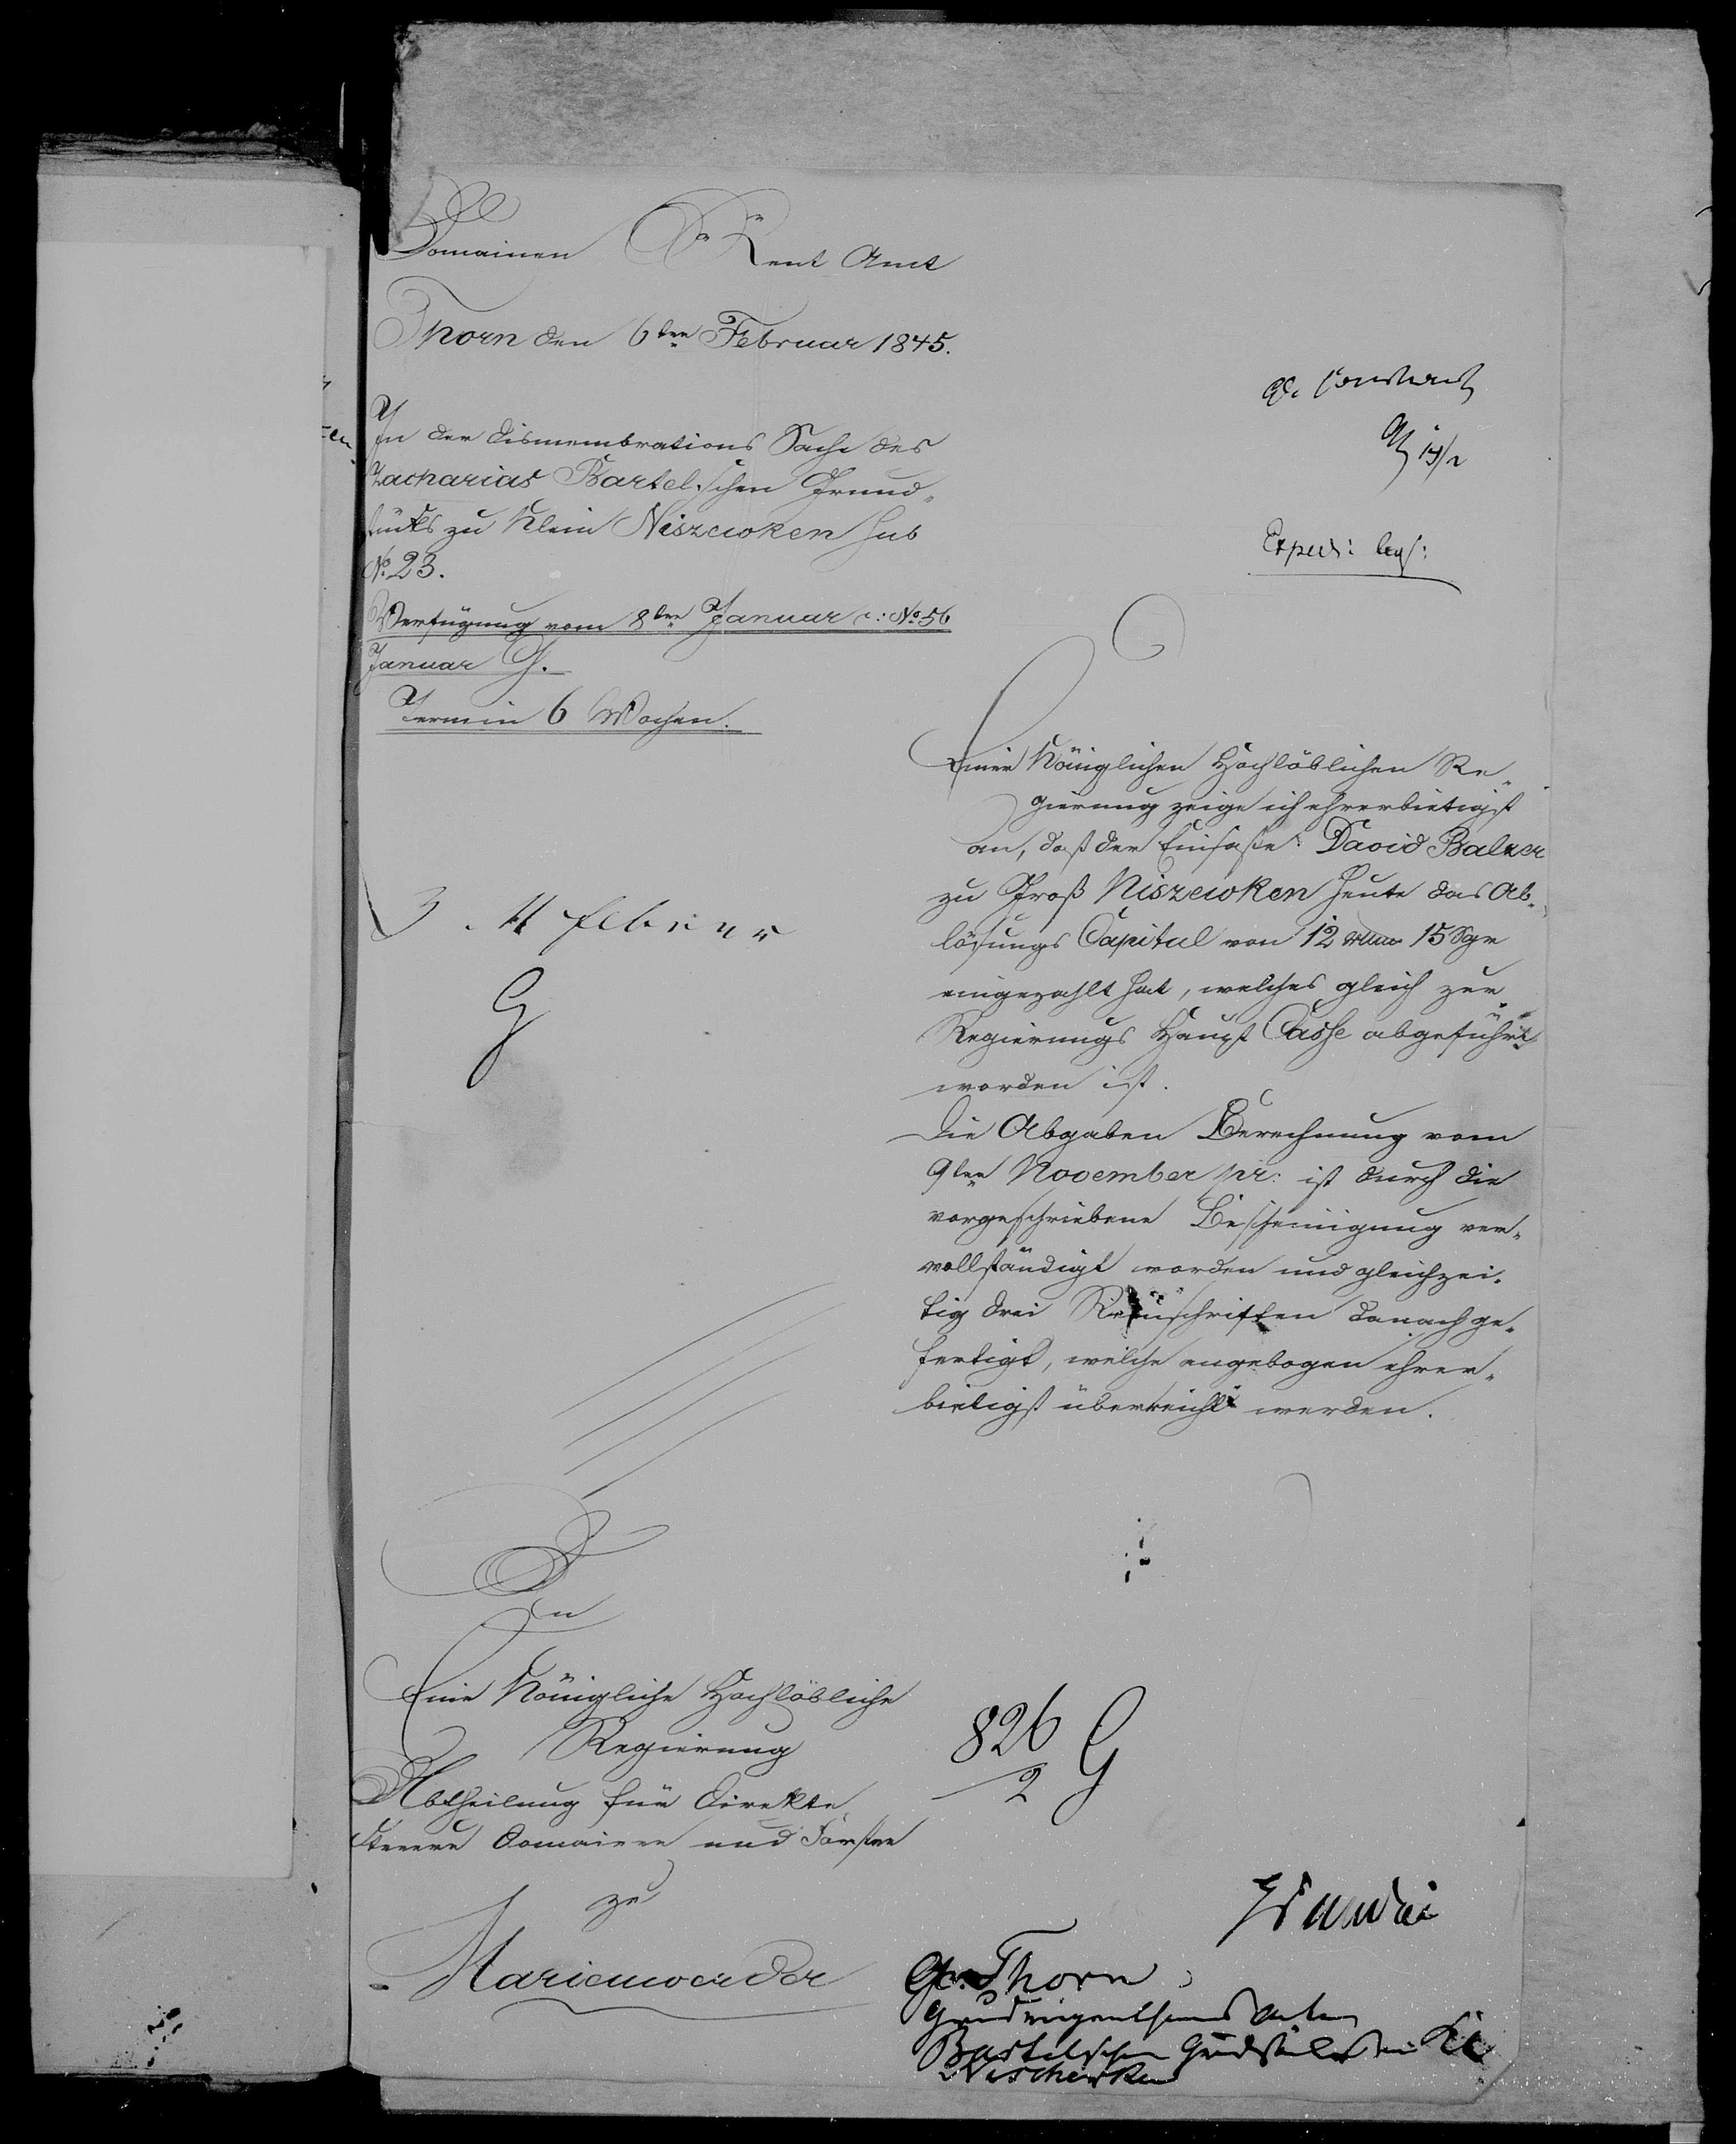 Domainen Rent Amt
Thorn den 6ten Februar 1845.
In der Dismembrations Sache des
Zacharias Bartelschen Grund„
stücks zu Klein Niszewken sub
No. 23.
Verfügung vom 8ten Januar c: No. 56
Januar G.
Termin 6 Wochen.
Exped:
Einer Königlichen Hochlöblichen Re„
gierung zeige ich ehrerbietigst
an, daß der Einsaße David Balzer
zu Groß Niszewken heute das Ab„
lösungs Capital von 12 15 Sgr
eingezahlt hat, welches gleich zur
Regierungs Haupt Casse abgeführt
worden ist.
Die Abgaben Berechnung vom
9ten November pr: ist durch die
vorgeschriebene Bescheinigung ver„
vollständigt worden und gleichzei„
tig drei Reinschriften danach ge„
fertigt, welche angebogen ehrer„
bietigst überreicht werden.
Februar
G
An
Eine Königliche Hochlöbliche
Regierung
Abtheilung für direkte
Steuern Domainen und Forsten
zu
Marienwerder
826 G
2
Thorn
Bartelschen Grundstücks in Kl
Nischewken